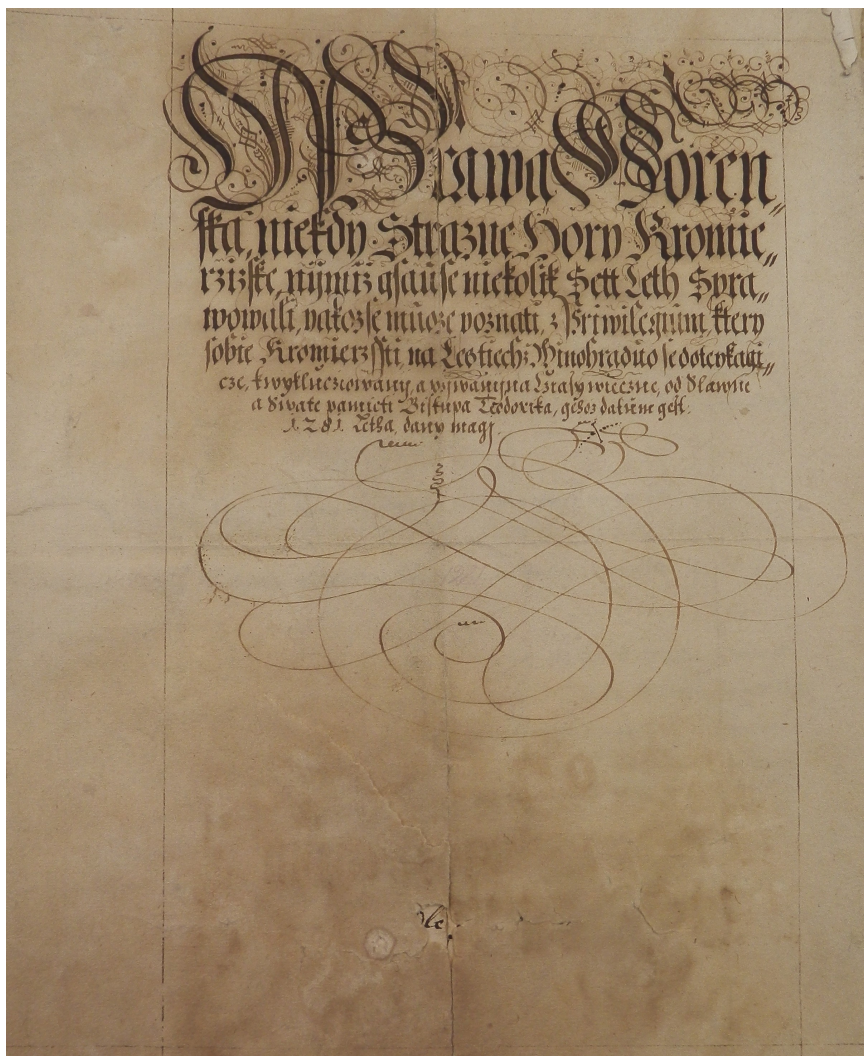 Prawa Horen„
ska, niekdy Strazne Hory Kromie„
rzizske, nijmiz gsau se niekolik Sett Leth Spra„
wowali, yakoz se muoze poznati, z Priwilegium, ktery
sobie Kromierzssti, na Lestiech z Winohraduo se doteykagi„
cze, a Czasy wieczne, od Slawne
a Swate pamieti Biskupa Teodorika, gehoz datum gest:
1.2.81. Letha, dany magj